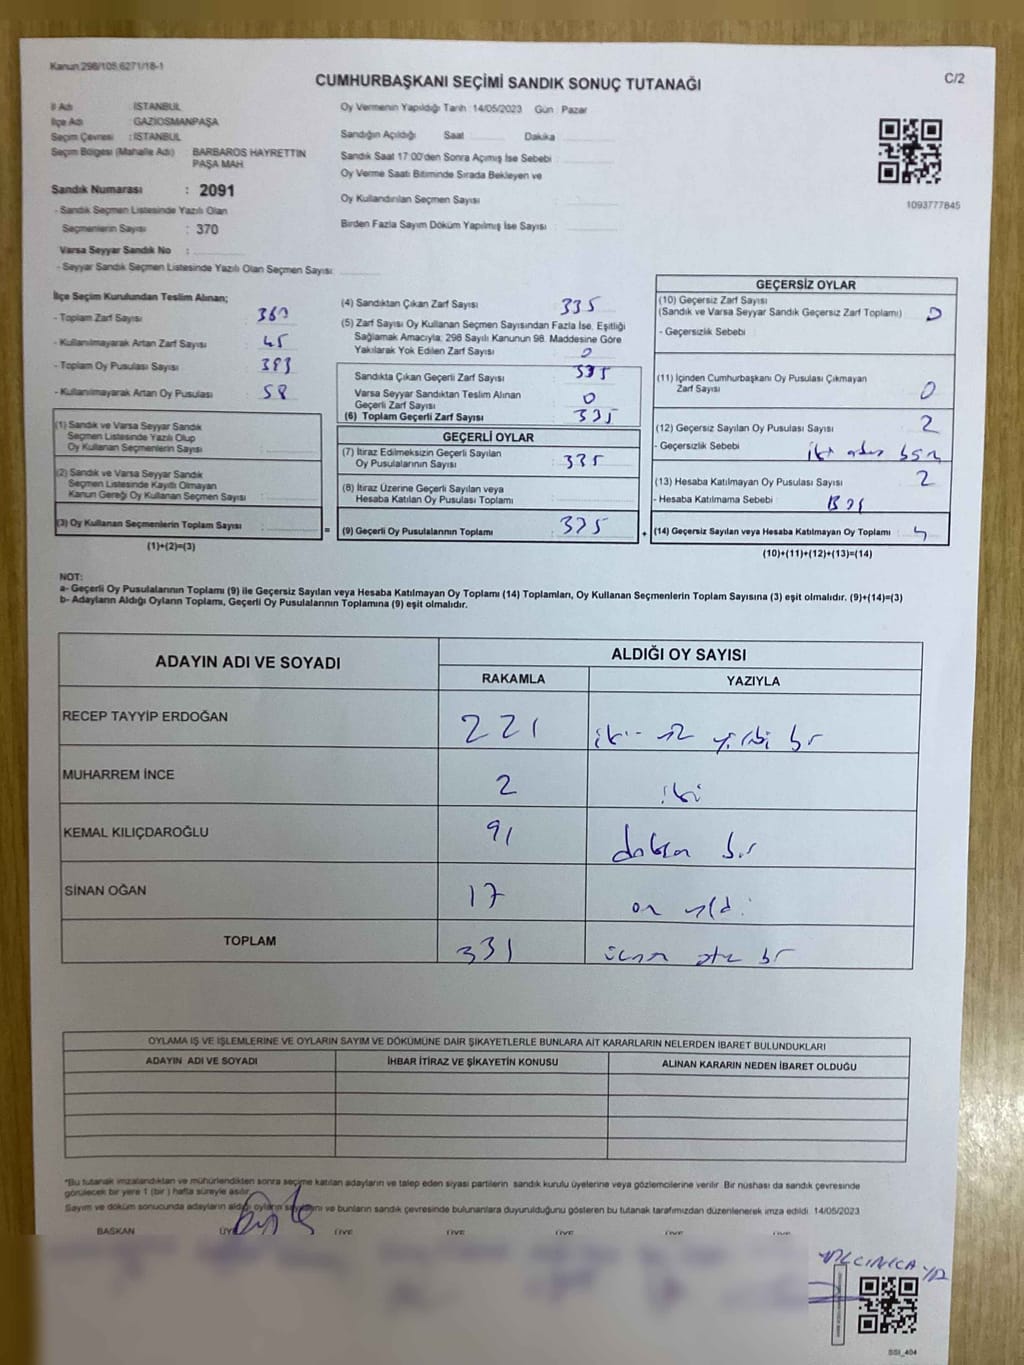 Kanun:298/105,6271/18-1
CUMHURBAŞKANI SEÇİMİ SANDIK SONUÇ TUTANAĞI
C/2
İl Adı : İSTANBUL
İlçe Adı : GAZİOSMANPAŞA
Seçim Çevresi : İSTANBUL
Seçim Bölgesi (Mahalle Adı) : BARBAROS HAYRETTIN
PAŞA MAH.
Sandık Numarası : 2091
- Sandık Seçmen Listesinde Yazılı Olan
Seçmenlerin Sayısı : 370
Varsa Seyyar Sandık No :
- Seyyar Sandık Seçmen Listesinde Yazılı Olan Seçmen Sayısı:
Oy Vermenin Yapıldığı Tarih : 14/05/2023 Gün : Pazar
Sandığın Açıldığı Saat Dakika
Sandık Saat 17:00'den Sonra Açımış İse Sebebi :
Oy Verme Saati Bitiminde Sırada Bekleyen ve
Oy Kullandırılan Seçmen Sayısı :
Birden Fazla Sayım Döküm Yapılmış İse Sayısı :
1093777845
İlçe Seçim Kurulundan Teslim Alınan;
- Toplam Zarf Sayısı :
- Kullanılmayarak Artan Zarf Sayısı : 45
- Toplam Oy Pusulası Sayısı : 393
- Kullanılmayarak Artan Oy Pusulası : 58
(1) Sandık ve Varsa Seyyar Sandık
Seçmen Listesinde Yazılı Olup
Oy Kullanan Seçmenlerin Sayısı :
(2) Sandık ve Varsa Seyyar Sandık
Seçmen Listesinde Kayıtlı Olmayan
Kanun Gereği Oy Kullanan Seçmen Sayısı :
(3) Oy Kullanan Seçmenlerin Toplam Sayısı :
(1)+(2)=(3)
=
(4) Sandıktan Çıkan Zarf Sayısı : 335
(5) Zarf Sayısı Oy Kullanan Seçmen Sayısından Fazla İse, Eşitliği
Sağlamak Amacıyla; 298 Sayılı Kanunun 98. Maddesine Göre
Yakılarak Yok Edilen Zarf Sayısı : 0
Sandıkta Çıkan Geçerli Zarf Sayısı : 335
Varsa Seyyar Sandıktan Teslim Alınan
Geçerli Zarf Sayısı : 0
(6) Toplam Geçerli Zarf Sayısı : 335
GEÇERLİ OYLAR
(7) İtiraz Edilmeksizin Geçerli Sayılan
Oy Pusulalarının Sayısı : 335
(8) İtiraz Üzerine Geçerli Sayılan veya
Hesaba Katılan Oy Pusulası Toplamı :
(9) Geçerli Oy Pusulalarının Toplamı : 335
+
GEÇERSİZ OYLAR
(10) Geçersiz Zarf Sayısı
(Sandık ve Varsa Seyyar Sandık Geçersiz Zarf Toplamı) : 0
- Geçersizlik Sebebi :
(11) İçinden Cumhurbaşkanı Oy Pusulası Çıkmayan
Zarf Sayısı : 0
(12) Geçersiz Sayılan Oy Pusulası Sayısı : 2
- Geçersizlik Sebebi : iki
(13) Hesaba Katılmayan Oy Pusulası Sayısı : 2
- Hesaba Katılmama Sebebi :
(14) Geçersiz Sayılan veya Hesaba Katılmayan Oy Toplamı :
(10)+(11)+(12)+(13)=(14)
NOT:
a- Geçerli Oy Pusulalarının Toplamı (9) ile Geçersiz Sayılan veya Hesaba Katılmayan Oy Toplamı (14) Toplamları, Oy Kullanan Seçmenlerin Toplam Sayısına (3) eşit olmalıdır. (9)+(14)=(3)
b- Adayların Aldığı Oyların Toplamı, Geçerli Oy Pusulalarının Toplamına (9) eşit olmalıdır.
ADAYIN ADI VE SOYADI ALDIĞI OY SAYISI
RAKAMLA YAZIYLA
RECEP TAYYİP ERDOĞAN 221 iki yüz yirmi bir
MUHARREM İNCE 2 iki
KEMAL KILIÇDAROĞLU 91 doksan bir
SİNAN OĞAN 17 on yedi
TOPLAM 331 üçyüz otuz bir
OYLAMA İŞ VE İŞLEMLERİNE VE OYLARIN SAYIM VE DÖKÜMÜNE DAİR ŞİKAYETLERLE BUNLARA AİT KARARLARIN NELERDEN İBARET BULUNDUKLARI
ADAYIN ADI VE SOYADI İHBAR İTİRAZ VE ŞİKAYETİN KONUSU ALINAN KARARIN NEDEN İBARET OLDUĞU
*Bu tutanak imzalandıktan ve mühürlendikten sonra seçime katılan adayların ve talep eden siyasi partilerin sandık kurulu üyelerine veya gözlemcilerine verilir. Bir nüshası da sandık çevresinde
görülecek bir yere 1 (bir ) hafta süreyle asılır.
Sayım ve döküm sonucunda adayların aldığı oyların sayısını ve bunların sandık çevresinde bulunanlara duyurulduğunu gösteren bu tutanak tarafımızdan düzenlenerek imza edildi. 14/05/2023
BAŞKAN ÜYE ÜYE ÜYE ÜYE ÜYE ÜYE
SSI_404